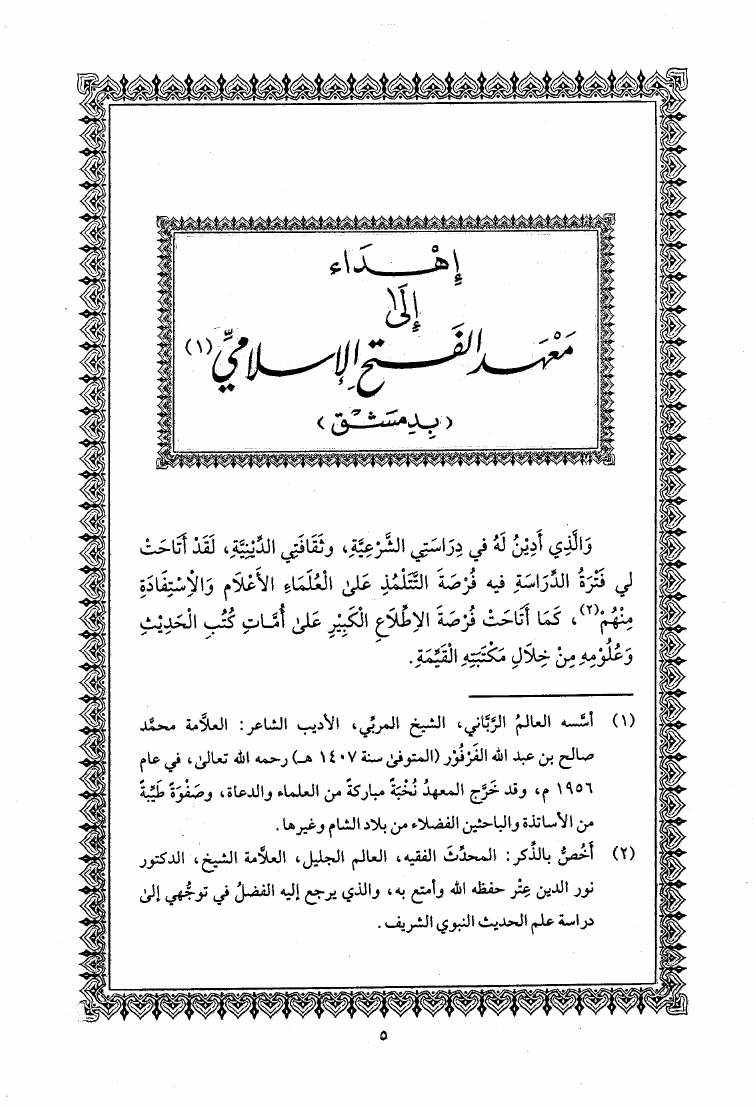 إِهْدَاء
إِلَى
مَعْهَد الفَتح الإسلاميِّ (١)
(بِدِمَشْق)
وَالَّذِي أَدِيْنُ لَهُ في دِرَاسَتِي الشَّرْعِيَّةِ، وثَقَافَتِي الدِّيْنِيَّةِ، لَقَدْ أَتَاحَتْ
لي فَتْرَةُ الدِّرَاسَةِ فيه فُرْصَةَ التَّتَلْمُذِ عَلىٰ العُلَمَاءِ الأَعْلَامِ وَالِاسْتِفَادَةِ
مِنْهُمْ(٢)، كَمَا أَتَاحَتْ فُرْصَةَ الِاطِّلَاعِ الْكَبِيْرِ عَلىٰ أُمَّاتِ كُتُبِ الْحَدِيْثِ
وَعُلُوْمِهِ مِنْ خِلَالِ مَكْتَبَتِهِ الْقَيِّمَةِ.
(١) أسَّسه العالمُ الرَّبَّاني، الشيخ المربِّي، الأديب الشاعر: العلاَّمة محمَّد
صالح بن عبد الله الفَرْفُوْر (المتوفىٰ سنة ١٤٠٧ هـ) رحمه الله تعالىٰ، في عام
١٩٥٦ م، وقد خَرَّج المعهدُ نُخْبَةً مباركةً من العلماء والدعاة، وصَفْوَةً طَيِّبةً
من الأساتذة والباحثين الفضلاء من بلاد الشام وغيرها.
(٢) أَخُصُّ بالذِّكر: المحدِّثَ الفقيه، العالم الجليل، العلاَّمة الشيخ، الدكتور
نور الدين عِتْر حفظه الله وأمتع به، والذي يرجع إليه الفضلُ في توجُّهي إلىٰ
دراسة علم الحديث النبوي الشريف.
٥